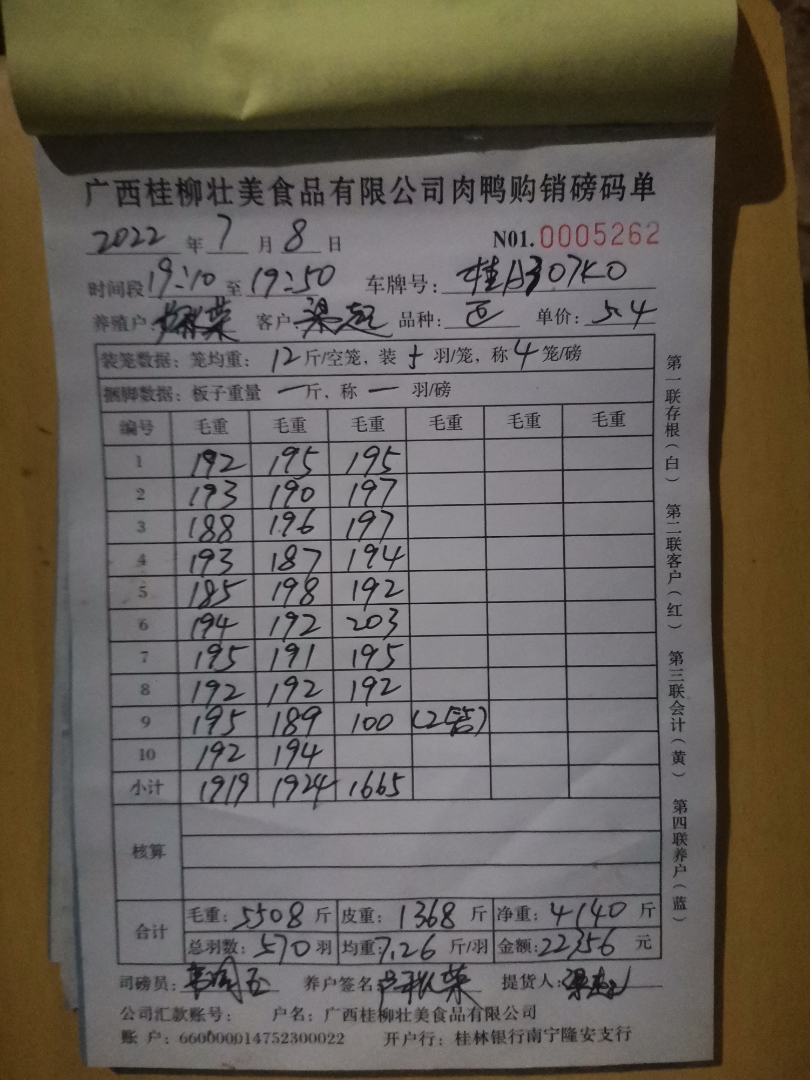 广西桂柳壮美食品有限公司肉鸭购销磅码单
2022年7月8日 N01.0005262
时间段19:10至19:50 车牌号:桂A307K0
养殖户 菜 客户:梁 品种: 单价:5.4
装笼数据:笼均重:12斤/空笼,装5羽/笼,称4笼/磅
捆脚数据:板子重量一斤,称一羽/磅
编号 毛重 毛重 毛重 毛重 毛重 毛重
1 192 195 195
2 193 190 197
3 188 196 197
4 193 187 194
5 185 198 192
6 194 192 203
7 195 191 195
8 192 192 192
9 195 189 100 (2笼)
10 192 194
小计 1919 1924 1665
核算
合计 毛重:5508斤 皮重:1368斤 净重:4140斤
总羽数:570羽 均重:7.26斤/羽 金额:22356元
司磅员: 养户签名: 菜 提货人:梁
公司汇款账号: 户名:广西桂柳壮美食品有限公司
账 户:660000014752300022 开户行:桂林银行南宁隆安支行
第一联存根(白) 第二联客户(红) 第三联会计(黄) 第四联养户(蓝)